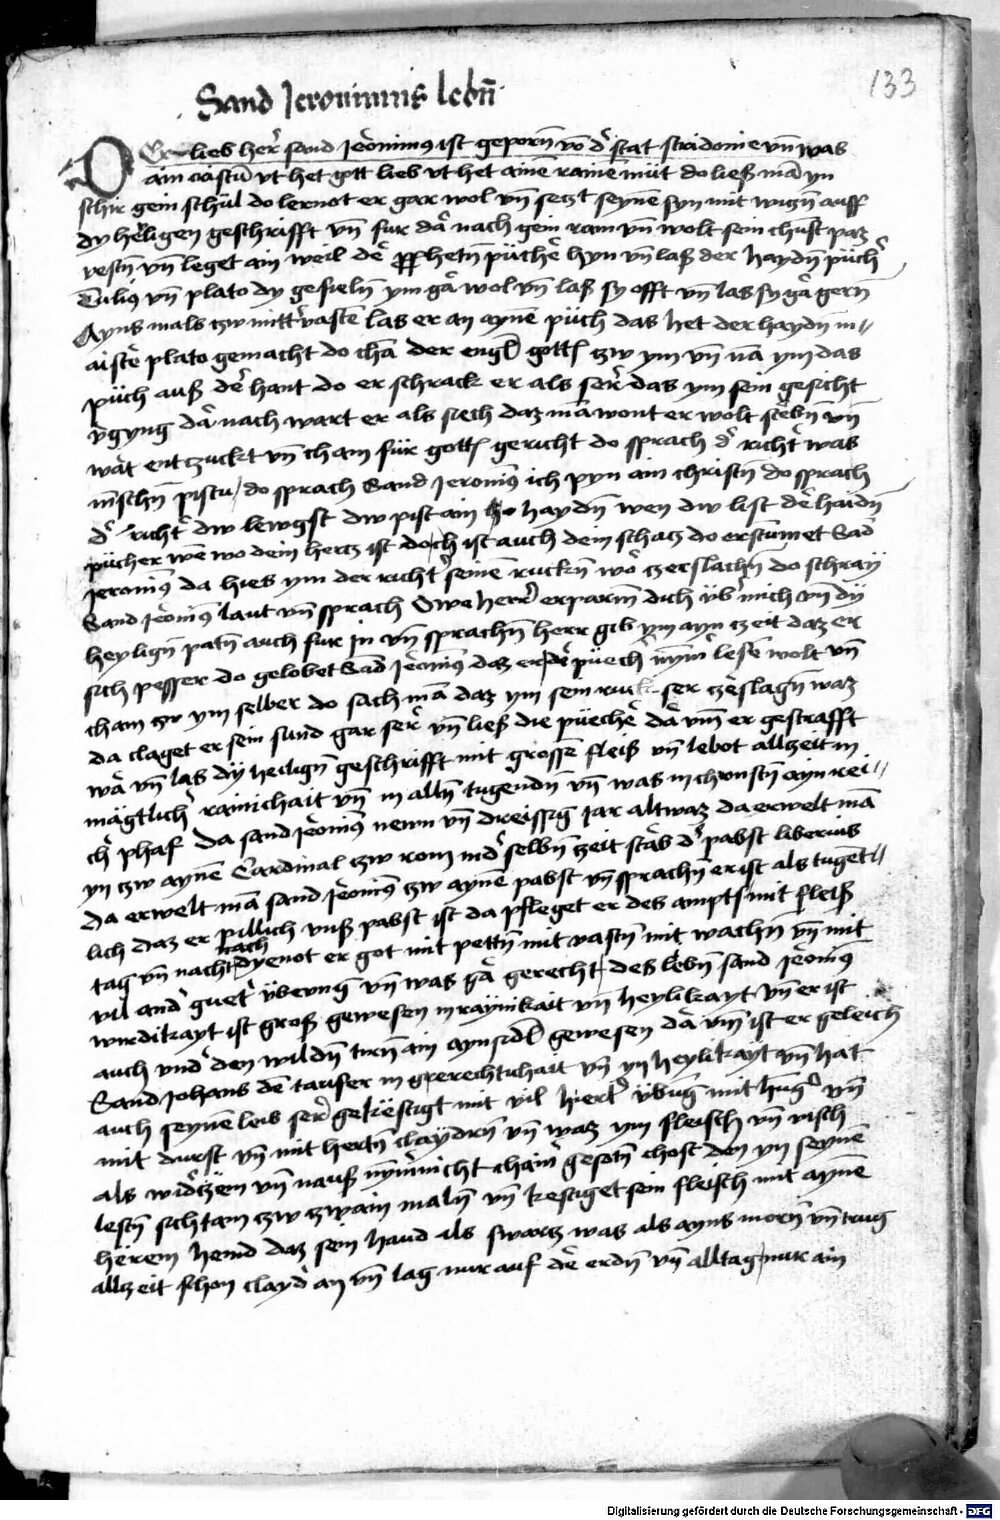 133
Sand Jeronimus lebñ
DEr lieb her sand Jeronimus ist geporñ võ d stat stridonie vñ was
ain cristũ vt het gott lieb vt het ainẽ rainẽ müt do ließ mã yn
schir gein schül do lernot er gar wol vñ setzt seynẽ syn mit witzñ auff
dy heligen geschrifft vñ fur da nach gein ram vñ wolt sein chunst paz
vestñ vñ leget ain weil de prophetñ püchẽ hyn vñ laß der haydñ püch
Tulius vñ plato dy gefielñ ym ga wol vñ laß sy offt vñ las sy ga gern
Ayns mals tzw mitt vastẽ las er an aynẽ püch das het der haydñ m
aistẽ plato gemacht do cham der engl gotts tzw ym vñ nã ym das
püch auß de hant do er schrack er als ser das ym sein gesicht
vgyng da nach wart er als siech daz mã wont er wolt stebñ vñ
wat entzuckt vñ cham für gotts gericht do sprach d richt was
mschñ pistu do sprach Sand Jeronius ich pyn ain christñ do sprach
d richt dw lewgst dw pist ain haydñ wen dw list de haidñ
pücher wẽ wo dein hertz ist doch ist auch dein schatz do erstumet Sãd
Jeronius da hies ym der richt seinẽ ruckñ wo tzerslachñ do schray
Sand Jeronius laut vñ sprach Owe herr erparm dich üb mich vñ dy
heyligñ patñ auch fur in vñ sprachñ herr gib ym ayn tzeit daz er
sich pesser do gelobet Sãd Jeronius daz er püech nym lesẽ wolt vñ
cham tzw ym selber do sach mã daz ym sein ruck ser tzeslagñ waz
da claget er sein sund gar ser vñ ließ die püechẽ da vm er gestrafft
wa vñ las dy heiligñ geschrifft mit grossẽ fleiß vñ lebot alltzeit in
mägtlich rainichait vñ in allñ tugendñ vñ was in chunstñ ayn rei
ch phaf Da sand Jeronius newn vñ dreissig Jar alt waz da erwelt mã
yn tzw aynẽ Cardinal tzw rom in d selbñ tzeit starb d pabst liberius
da erwelt mã sand Jeronius tzw aynẽ pabst vñ sprachñ er ist als tugẽt
lich daz er pillich vnß pabst ist da pfleget er des ampts mit fleiß
tag vñ nacht dyenot er got mit pettñ mit vastñ mit wachñ vñ mit
nach
vil and guet übung vñ was ga gerecht des lebñ sand Jeronius
wirdikayt ist groß gewesen in raynikait vñ heylikayt vñ er ist
auch vnd den wildñ tirñ ain aynsidl gewesen da vm ist er geleich
Sand Johans dẽ taufer in gerechtichait vñ yn heylikayt vñ hat
auch seynẽ leib ser gekestigt mit vil hert übug mit hug vñ
mit durst vñ mit hertñ claydrñ vñ waz ym fleisch vñ visch
als widtzem vñ nauß nym nicht cham gesotñ chost den yn seynẽ
lestñ sichtam tzw tzwain malñ vñ kestiget sein fleisch mit aynẽ
herem hemd daz sein haud als swartz was als ayns morñ vñ trug
alltzeit schon clayd an vñ lag nur auf de erdñ vñ alltag nur ain
Digitalisierung gefördert durch die Deutsche Forschungsgemeinschaft - DFG